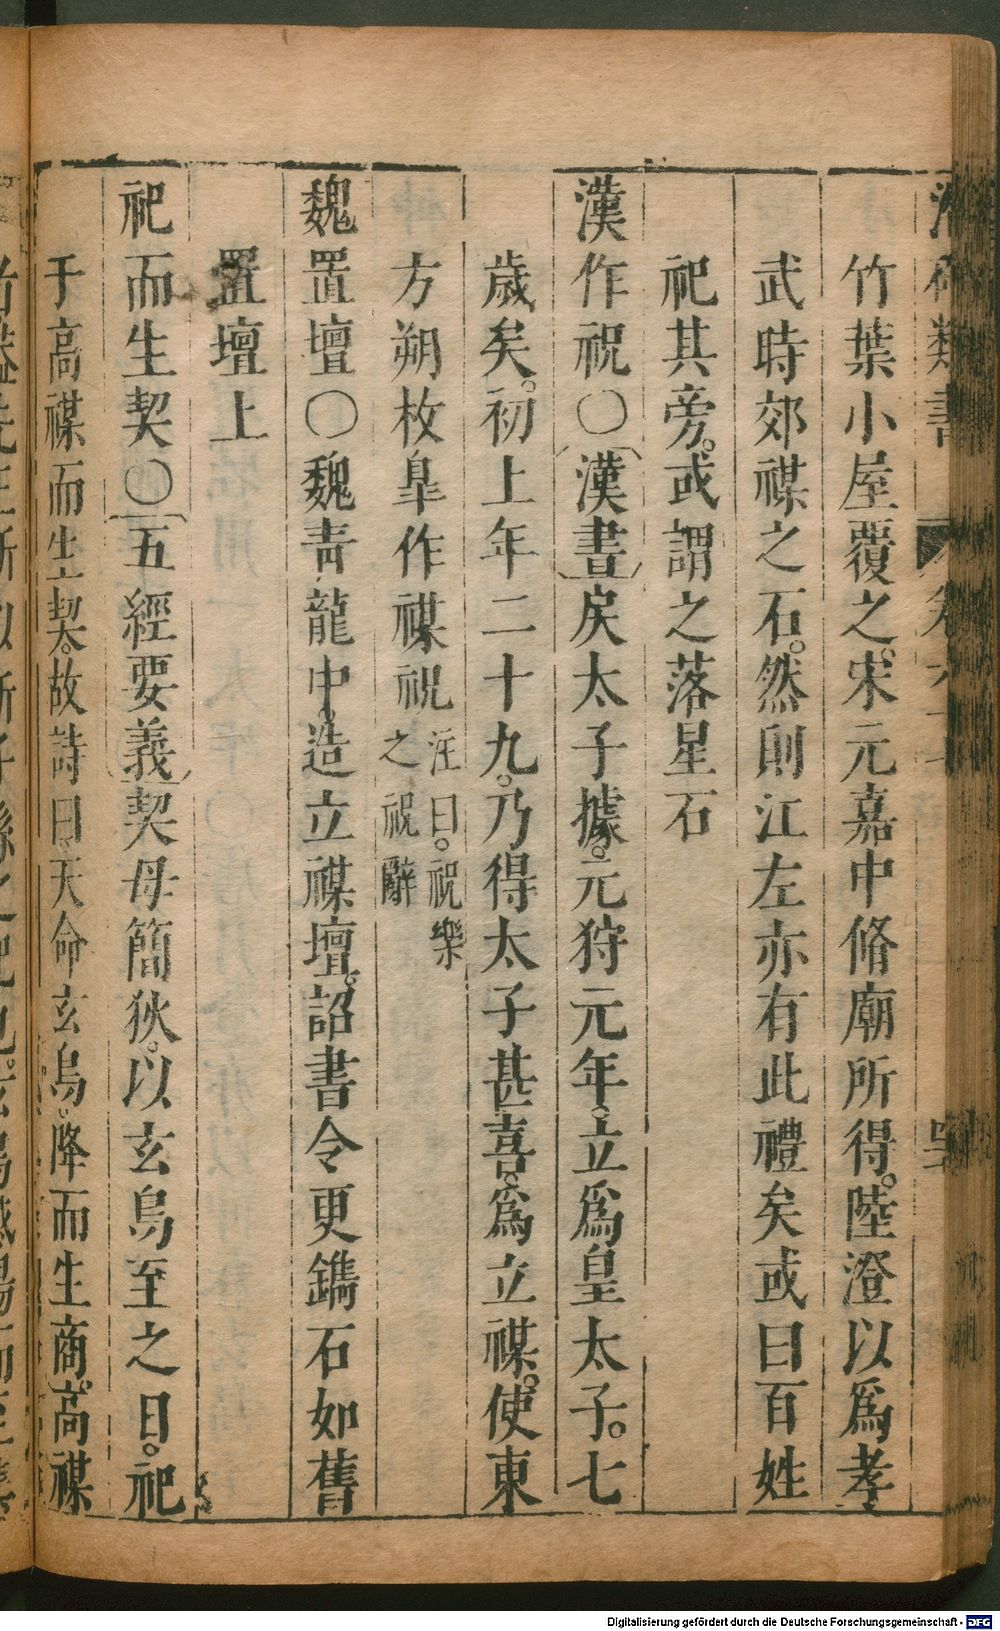 竹葉小屋覆之。宋元嘉中脩廟所得。陸澄以爲孝
武時郊禖之石。然則江左亦有此禮矣或曰百姓
祀其旁。或謂之落星石
漢作祝○漢書戾太子據。元狩元年。立爲皇太子。七
歲矣。初上年二十九。乃得太子甚喜。爲立禖。使東
方朔枚臯作禖祝注曰。祝樂之祝辭
魏置壇○魏靑龍中。造立禖壇。詔書令更鐫石如舊
置壇上
祀而生契○五經要義契母簡狄。以玄鳥至之日。祀
于高禖而生契。故詩曰。天命玄鳥。降而生商。高禖
Digitalisierung gefördert durch die Deutsche Forschungsgemeinschaft - DFG